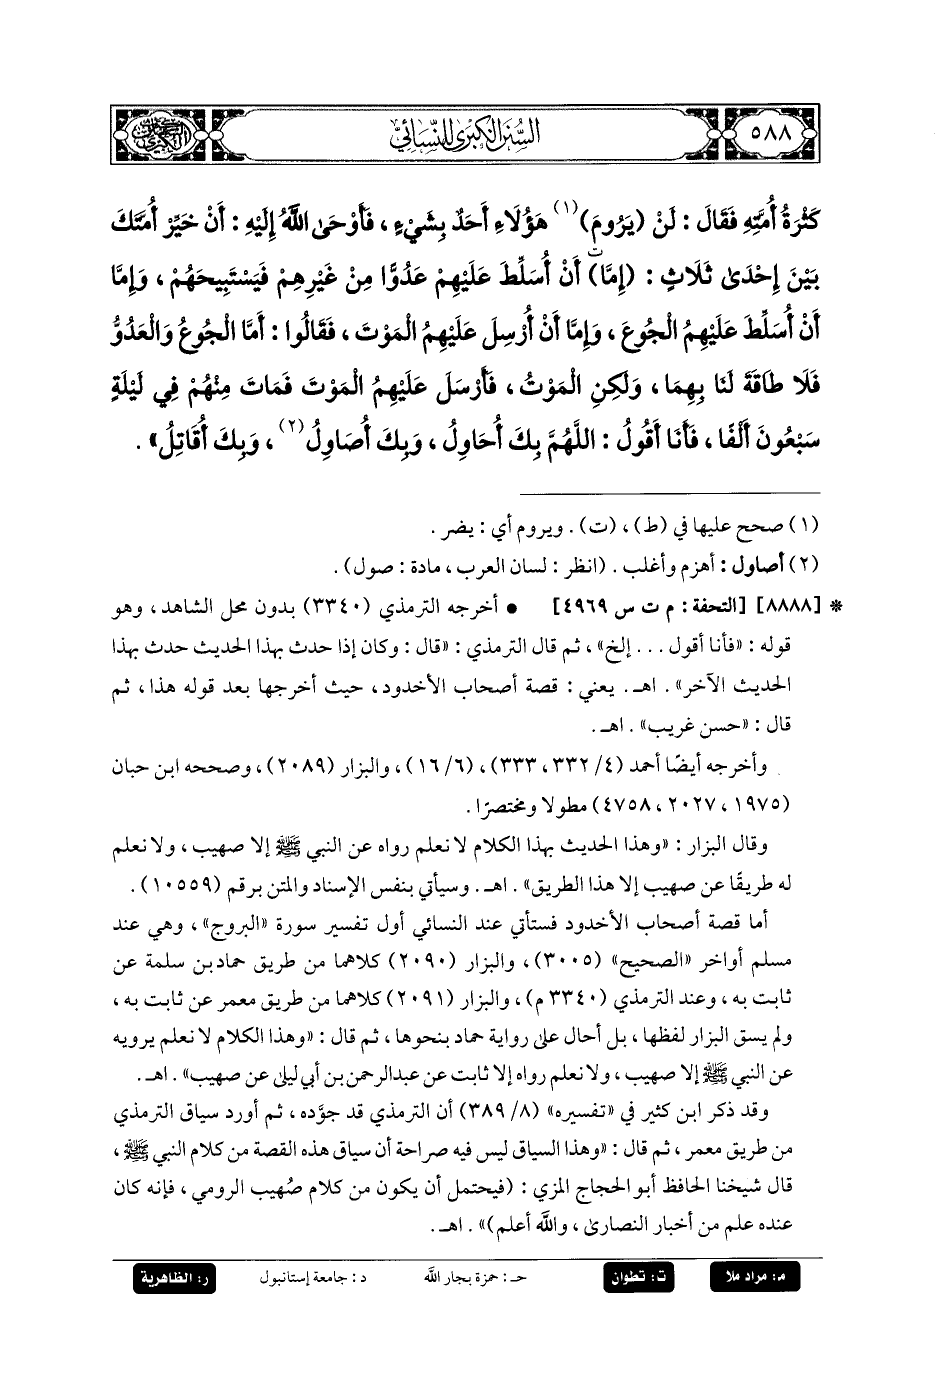 ٥٨٨
السُّنَنُ الكِبْرَى لِلنَّسَائِيِّ
كَثْرَةُ أُمَّتِهِ فَقَالَ : لَنْ (يَرُومَ)(١) هَؤُلَاءِ أَحَدٌ بِشَيْءٍ ، فَأَوْحَى اللَّهُ إِلَيْهِ : أَنْ خَيِّرْ أُمَّتَكَ
بَيْنَ إِحْدَى ثَلَاثٍ : (إِمَّا)ت أَنْ أُسَلِّطَ عَلَيْهِمْ عَدُوًّا مِنْ غَيْرِهِمْ فَيَسْتَبِيحَهُمْ ، وَإِمَّا
أَنْ أُسَلِّطَ عَلَيْهِمُ الْجُوعَ ، وَإِمَّا أَنْ أُرْسِلَ عَلَيْهِمُ الْمَوْتَ ، فَقَالُوا : أَمَّا الْجُوعُ وَالْعَدُوُّ
فَلَا طَاقَةَ لَنَا بِهِمَا ، وَلَكِنِ الْمَوْتُ ، فَأَرْسَلَ عَلَيْهِمُ الْمَوْتَ فَمَاتَ مِنْهُمْ فِي لَيْلَةٍ
سَبْعُونَ أَلْفًا ، فَأَنَا أَقُولُ : اللَّهُمَّ بِكَ أُحَاوِلُ ، وَبِكَ أُصَاوِلُ(٢) ، وَبِكَ أُقَاتِلُ» .
(١) صحح عليها في (ط) ، (ت) . ويروم أي : يضر .
(٢) أصاول : أهزم وأغلب . (انظر : لسان العرب ، مادة : صول) .
* [٨٨٨٨] [التحفة : م ت س ٤٩٦٩] • أخرجه الترمذي (٣٣٤٠) بدون محل الشاهد ، وهو
قوله : «فأنا أقول . . . إلخ» ، ثم قال الترمذي : «قال : وكان إذا حدث بهذا الحديث حدث بهذا
الحديث الآخر» . اهـ . يعني : قصة أصحاب الأخدود ، حيث أخرجها بعد قوله هذا ، ثم
قال : «حسن غريب» . اهـ .
وأخرجه أيضًا أحمد (٤/ ٣٣٢ ، ٣٣٣) ، (٦/ ١٦) ، والبزار (٢٠٨٩) ، وصححه ابن حبان
(١٩٧٥ ، ٢٠٢٧ ، ٤٧٥٨) مطولا ومختصرًا .
وقال البزار : «وهذا الحديث بهذا الكلام لا نعلم رواه عن النبي ﷺ إلا صهيب ، ولا نعلم
له طريقًا عن صهيب إلا هذا الطريق» . اهـ . وسيأتي بنفس الإسناد والمتن برقم (١٠٥٥٩) .
أما قصة أصحاب الأخدود فستأتي عند النسائي أول تفسير سورة «البروج» ، وهي عند
مسلم أواخر «الصحيح» (٣٠٠٥) ، والبزار (٢٠٩٠) كلاهما من طريق حماد بن سلمة عن
ثابت به ، وعند الترمذي (٣٣٤٠ م) ، والبزار (٢٠٩١) كلاهما من طريق معمر عن ثابت به ،
ولم يسق البزار لفظها ، بل أحال على رواية حماد بنحوها ، ثم قال : «وهذا الكلام لا نعلم يرويه
عن النبي ﷺ إلا صهيب ، ولا نعلم رواه إلا ثابت عن عبدالرحمن بن أبي ليلى عن صهيب» . اهـ .
وقد ذكر ابن كثير في «تفسيره» (٨/ ٣٨٩) أن الترمذي قد جوَّده ، ثم أورد سياق الترمذي
من طريق معمر ، ثم قال : «وهذا السياق ليس فيه صراحة أن سياق هذه القصة من كلام النبي ﷺ ،
قال شيخنا الحافظ أبو الحجاج المزي : (فيحتمل أن يكون من كلام صُهيب الرومي ، فإنه كان
عنده علم من أخبار النصارى ، والله أعلم)» . اهـ .
م: مراد ملا ت: تطوان حـ : حمزة بجار الله د : جامعة إستانبول ر: الظاهرية